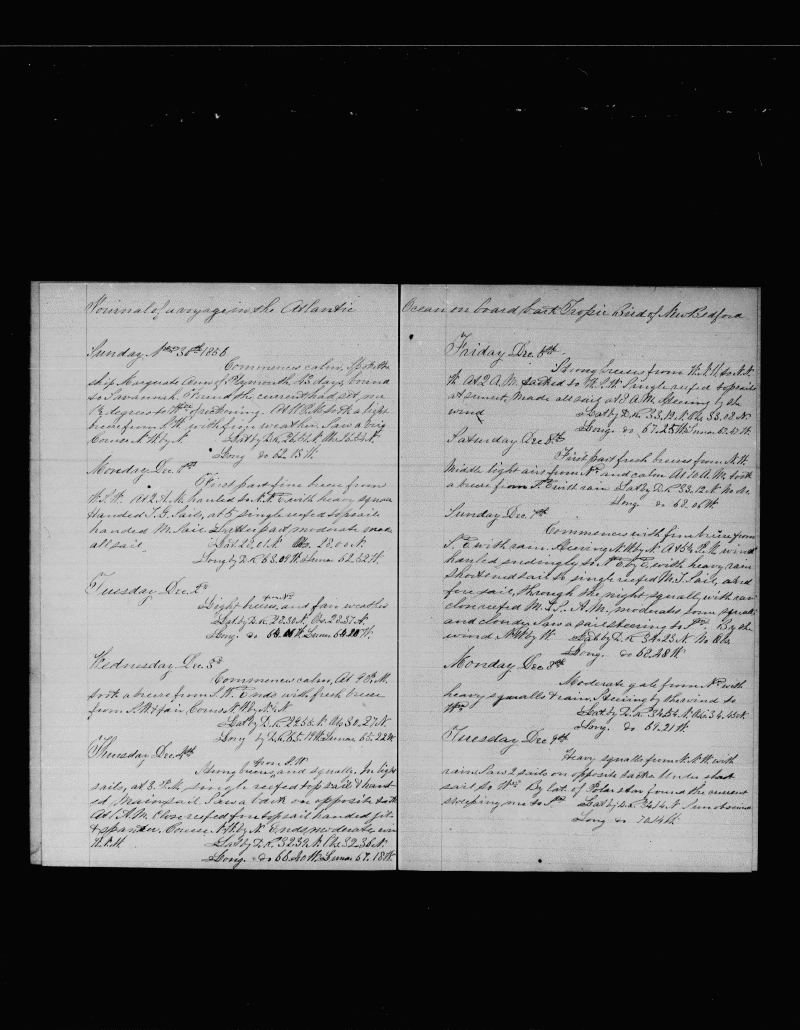 Journal of a voyage in the Atlantic
Sunday Nov 30th 1856
Commences calm, Spoke the
ship Margrate Ann of Plymouth 23 days, bound
to Savannah. Found the current had set me
degrees to reckoning. At 8 P.M. took a light
breeze from S.W. with fine weather. Saw a brig
Course N.W by N Lat by D.R. 26.
Long do 62.13 W.
Monday Dec 1st
First part fine breeze from
W.S.W. At 2 A.M. hauled to N.N.E with heavy squall
Handed T.G. Sails, at 5, single reefed topsails
handed M. Sail. Latter part moderate made
all sail. Lat. 28.01 N. Obs. 28.00 N.
Long by D.R. 63.04 W. Lunar 62.52 W.
Tuesday Dec. 2nd
from N
Light breeze, and fair weather
Lat by D.R. 28.30 N. Obs. 28.37 N.
Long. do W. Lunar W.
Wednesday Dec 3d
Commences calm, At 9 P.M.
took a breeze from S.W. Ends with fresh breeze
from S.W. & fair. Course N.W by N
Lat by D.R. N. Obs 30.27 N
Long by D.R. 65.19 W. Lunar 65.22 W
Thursday Dec. 4th
from S.W
Strong breeze, and squally. In light
sails, at 8. P.M. single reefed topsail & hand
ed mainsail. Saw a bark on opposite tack
At 1 A.M. Close reefed fore topsail handed jib
& spanker. Course N.W by N. Ends, moderate, win
Lat by D.R. 32.39 N. Obs 32.36 N.
Long. do 66.20 W. Lunar 67.18 W
Ocean on board bark Tropic Bird of New Bedford
Friday Dec 5th
Strong breezes from W.N.W to N.N.
W. At 2 A.M. tacked to W.S.W Single reefed topsails
at sunset, Made all sail at 8 A.M. Steering by the
wind Lat by D.R. 33.13 N. Obs. 33.08 N.
Long. do 67.25 W. Lunar
Saturday Dec 6th
First part fresh breeze from N.W.
Middle light airs from N and calm At 10 A.M. took
a breeze from S.E with rain Lat by D.R 33.12 N. No Obs
Long do 68.06 W.
Sunday Dec. 7th
Commences with fine breeze from
S.E with rain. Steering N.W by N. At 5 P.M. wind
hauled suddenly to N.E by E, with heavy rain
Shortened sail to single reefed M.T. Sails, and
fore sail, through the night squally, with rain
close reefed M.T.S. A.M., moderate some squalls
and cloudy. Saw a sail steering to S. By the
wind N.W by W. Lat by D.R. 34.23 N. No Obs
Long. do 68.48 W.
Monday Dec 8th
Moderate gale from N with
heavy squalls & rain, Steering by the wind to
W Lat by D.R. 34.54 N. Obs 34. N
Long. do 69.21 W.
Tuesday Dec 9th
Heavy squalls from N.N.W. with
rain Saw 2 sails on opposite tacks Under short
sail to W By lat. of Polar star found the current
sweeping me to S Lat by D.R 34.14 N. Lunar observed
Long do 70.14 W.